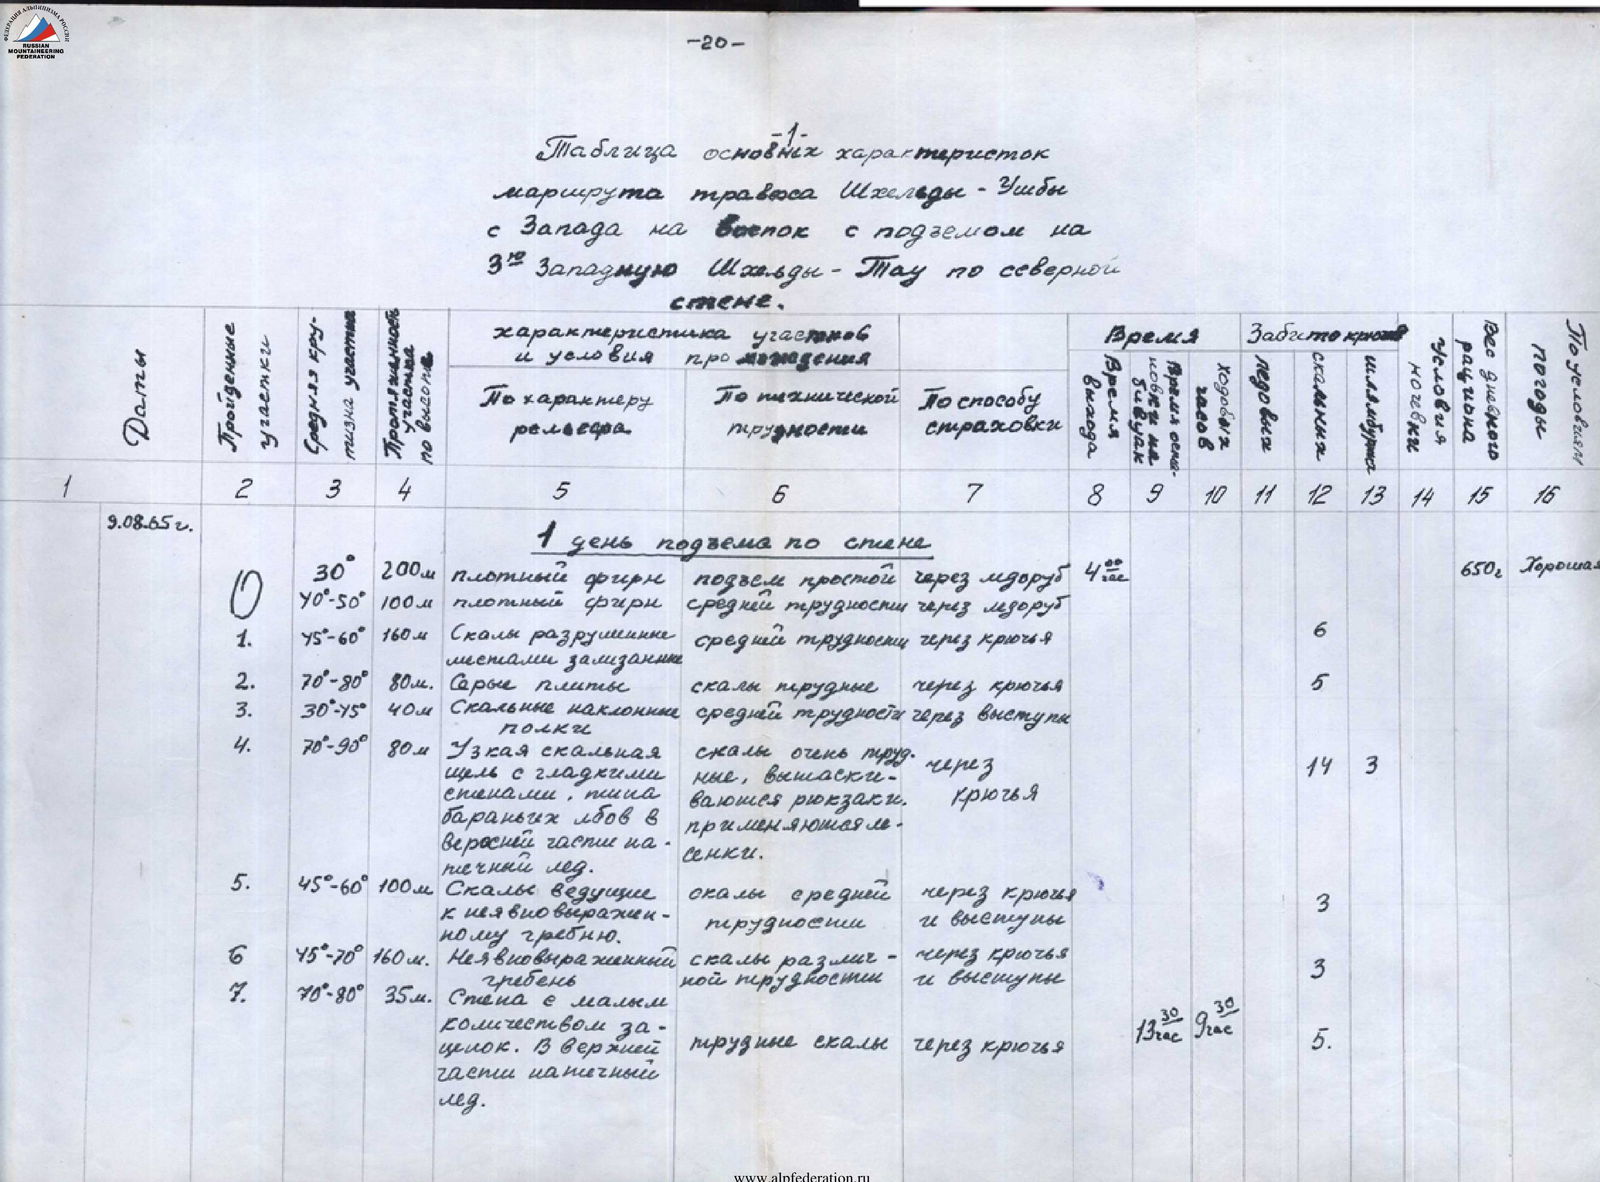 ФЕДЕРАЦИЯ АЛЬПИНИЗМА РОССИИ
RUSSIAN
MOUNTAINEERING
FEDERATION
-20-
-1-
Таблица основных характеристик
маршрута траверса Шхельды - Ушбы
с Запада на Восток с подъемом на
3ю Западную Шхельды - Тау по северной
стене.
Даты
Пройденные участки
Средняя крутизна участка
Протяженность участка по высоте
характеристика участков
и условия прохождения
По характеру
рельефа
По технической
трудности
По способу
страховки
Время
Время выхода
Время остановки на бивуак
Ходовых часов
Забито крючьев
ледовых
скальных
шлямбурных
Условия ночевки
Вес дневного рациона
По условиям погоды
1 2 3 4 5 6 7 8 9 10 11 12 13 14 15 16
9.08.65г.
1 день подъема по стене
0 30° 200м плотный фирн подъем простой через ледоруб 4 00 час 650г Хорошая
40°-50° 100м плотный фирн средней трудности через ледоруб
1. 45°-60° 160м Скалы разрушенные средней трудности через крючья 6
местами зализанные
2. 70°-80° 80м. Серые плиты скалы трудные через крючья 5
3. 30°-45° 40м Скальные наклонные средней трудности через выступы
полки
4. 70°-90° 80м Узкая скальная скалы очень труд-
щель с гладкими ные, вытаски- через 14 3
стенами, типа ваются рюкзаки. крючья
бараньих лбов в применяются ле-
верхней части на- сенки.
течный лед.
5. 45°-60° 100м Скалы ведущие скалы средней через крючья 3
к неявновыражен- трудности и выступы
ному гребню.
6 45°-70° 160м. Неявновыраженный скалы различ- через крючья 3
гребень ной трудности и выступы
7. 70°-80° 35м. Стена с малым
количеством за- 13 30 час 9 30 час
цепок. В верхней трудные скалы через крючья 5.
части натечный
лед.
www.alpfederation.ru